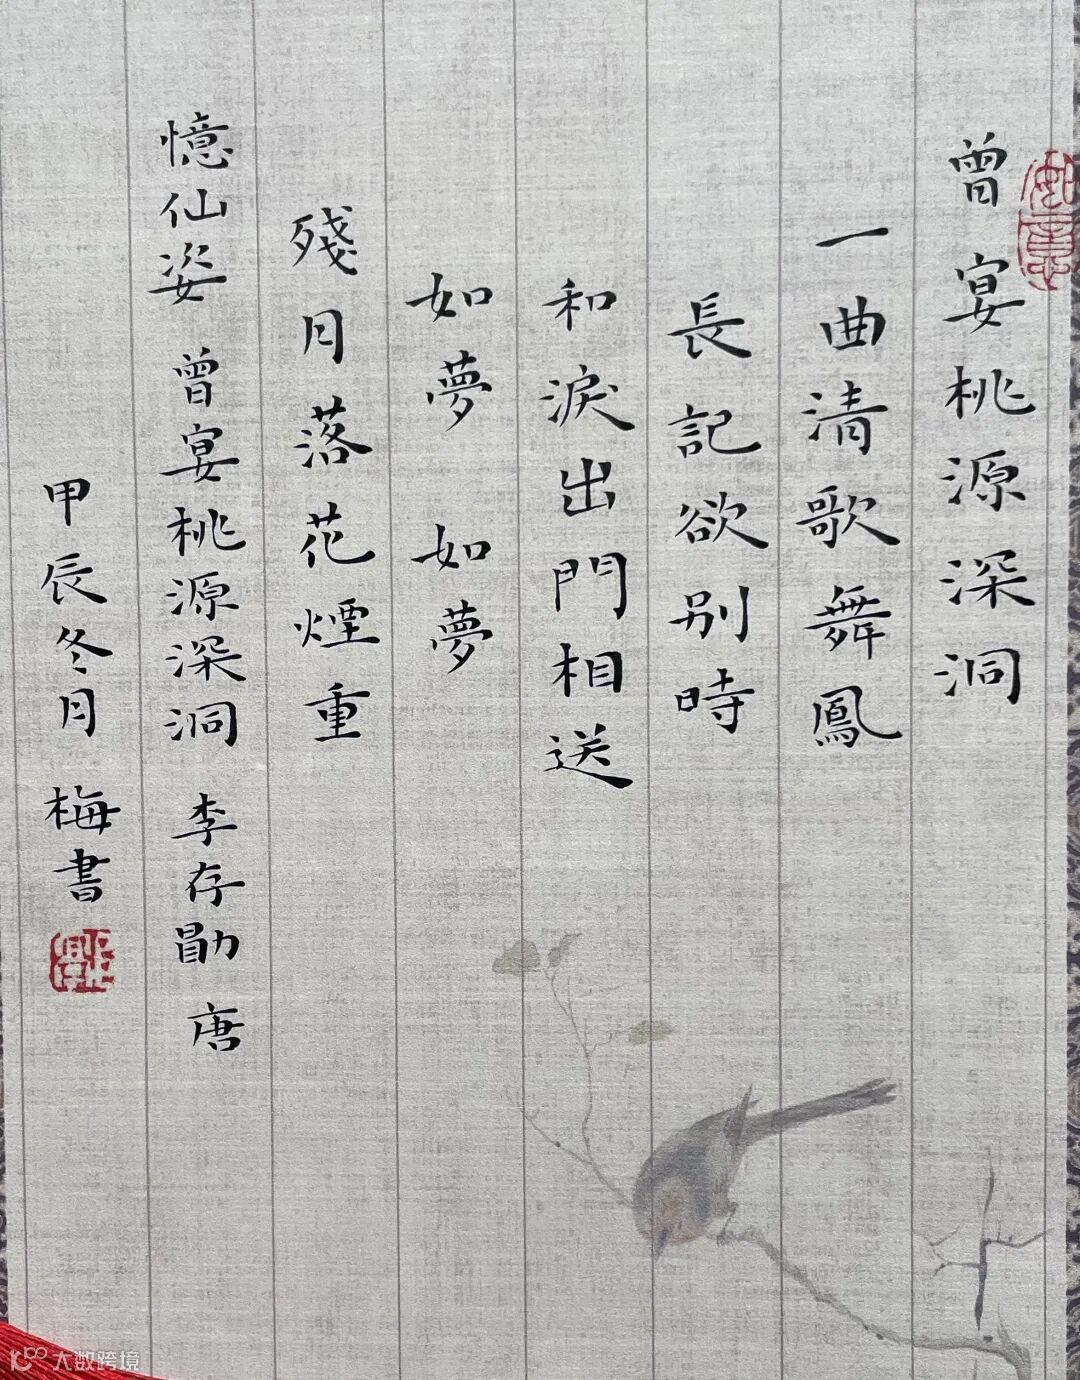 曾宴桃源深洞
一曲清歌舞鳳
長記欲别時
和淚出門相送
如夢 如夢
殘月落花煙重
憶仙姿 曾宴桃源深洞 李存勖 唐
甲辰冬月 梅書
大数跨境